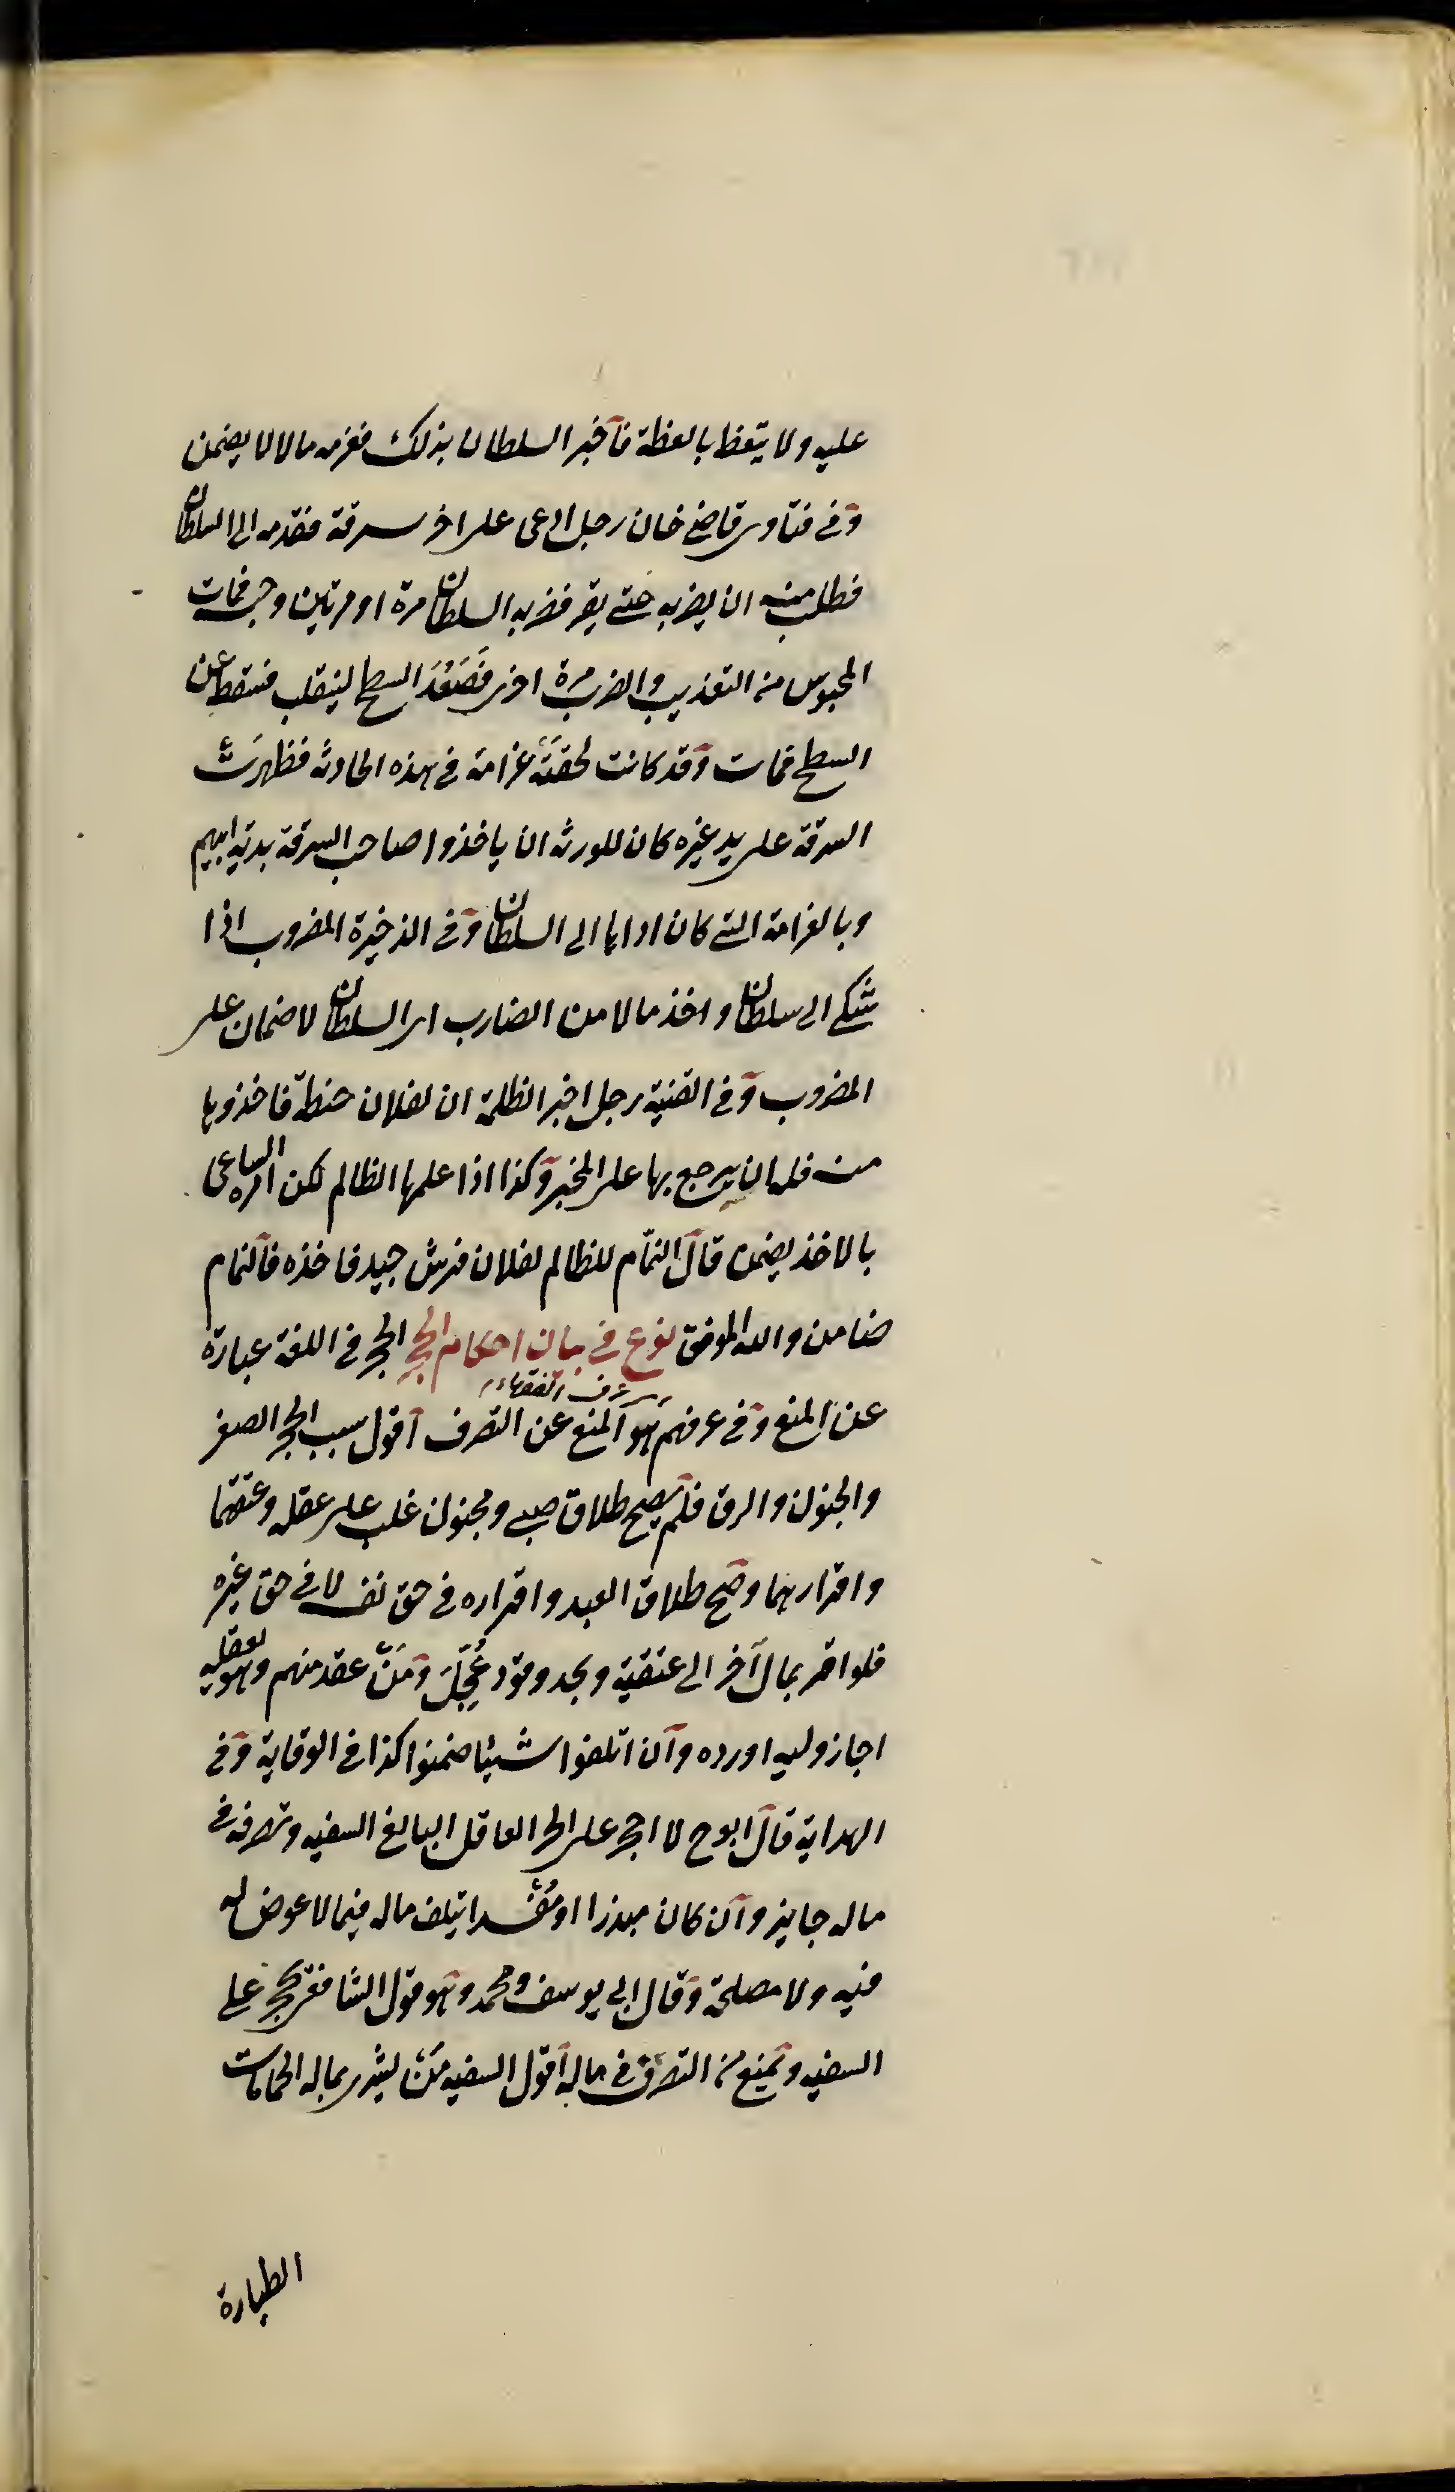 عليه ولا يتعظ بالعظة فاخبر السلطان بذلك فغرمه مالا لا يضمن
وفى فتاوى قاضى خان رجل ادعى على اخر سرقة فقدمه الى السلطان
فطلب منه ان يضربه حتى يقر فضربه السلطان مرة او مرتين وحبسه فخاف
المحبوس من التعذيب والضرب مرة اخرى فصَعَدَ السطح لينقلب فسقط عن
السطح فمات وقد كانت لحقته غرامة فى هذه الحادثة فظهرت
السرقة على يد غيره كان للورثة ان ياخذوا صاحب السرقة بدية ابيهم
وبالغرامة التى كان اداها الى السلطان وفى الذخيرة المضروب اذا
شكى الى سلطان واخذ مالا من الضارب اى السلطان لا ضمان على
المضروب وفى القنية رجل اخبر الظلمة ان لفلان حنطة فاخذوها
من فلان يرجع بها على المخبر وكذا اذا علمها الظالم لكن امره الساعى
بالاخذ يضمن قال النمّام للظالم لفلان فرس جيد فاخذه فالنمام
ضامن والله الموفق نوع فى بيان احكام الحجر الحجر فى اللغة عبارة
عن المنع وفى عرفهم هو المنع عن التصرف اقول سبب الحجر الصغر
عرف الفقهاء
والجنون والرق فلم يصح طلاق صبى ومجنون غلب على عقله وعتقهما
واقرارهما وصح طلاق العبد واقراره فى حق نفسه لا فى حق غيره
فلو اقر بمال آخر الى عتقه وبحد وقود عُجِّلَ ومَنْ عقد منهم وهو يعقله
اجاز وليه او رده وان اتلفوا شيئا ضمنوا كذا فى الوقاية وفى
الهداية قال ابوح لا احجر على الحر العاقل البالغ السفيه وتصرفه فى
ماله جايز وان كان مبذرا او مُفسدا يتلف ماله فيما لا عوض له
فيه ولا مصلحة وقال ابى يوسف ومحمد وهو قول الشافعى يحجر على
السفيه ويمنع من التصرف فى ماله اقول السفيه مَنْ يشترى بماله الحمامات
الطيارة